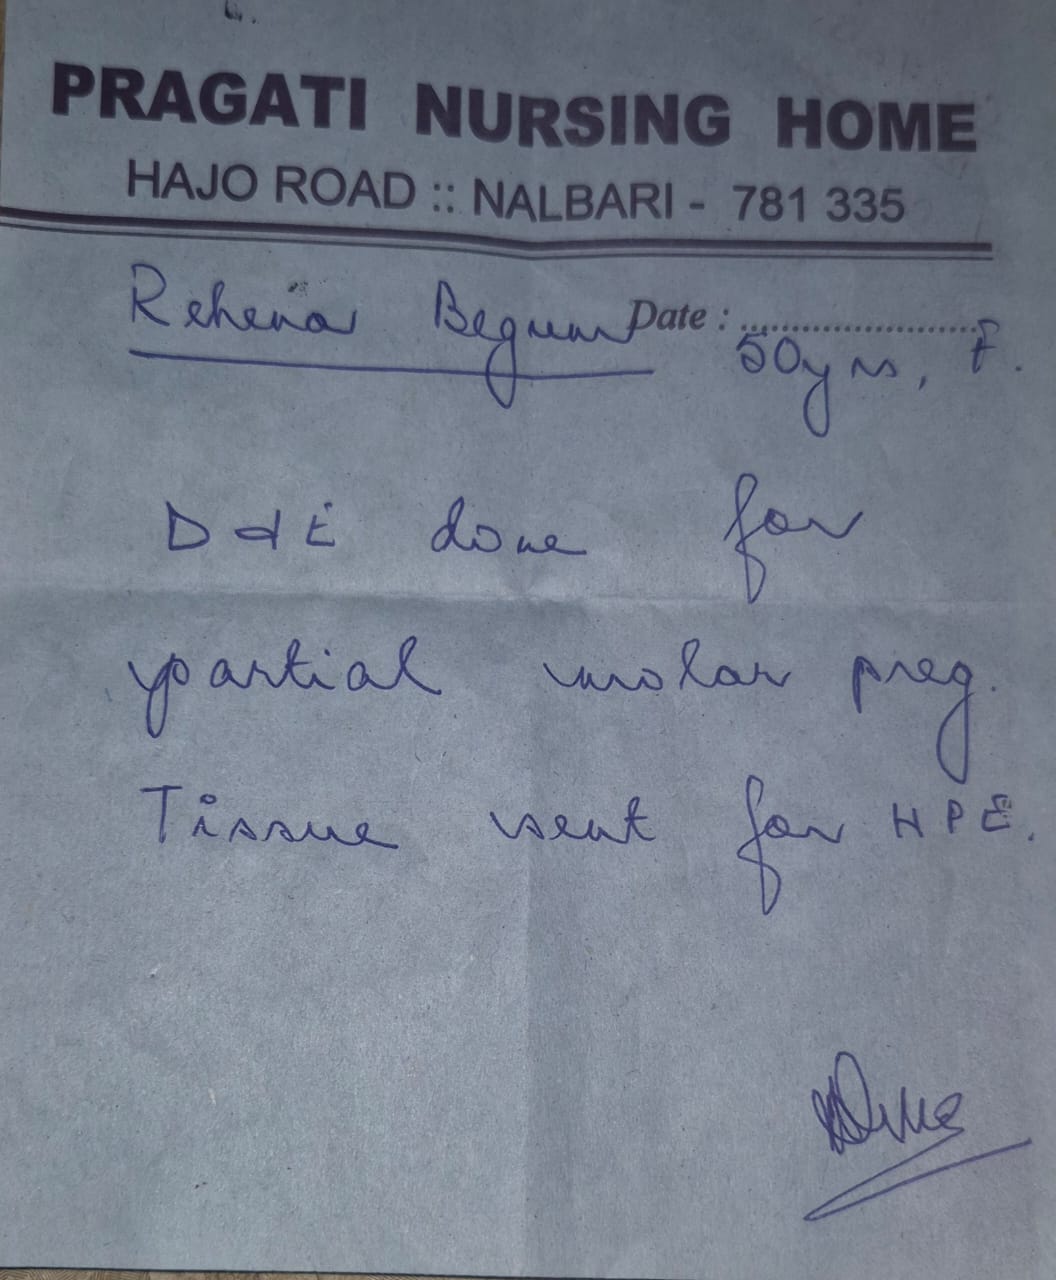 PRAGATI NURSING HOME
HAJO ROAD :: NALBARI - 781 335
Rehena Begum Date : ........................
50yrs, F.
D & E done for
partial molar preg.
Tissue sent for HPE.